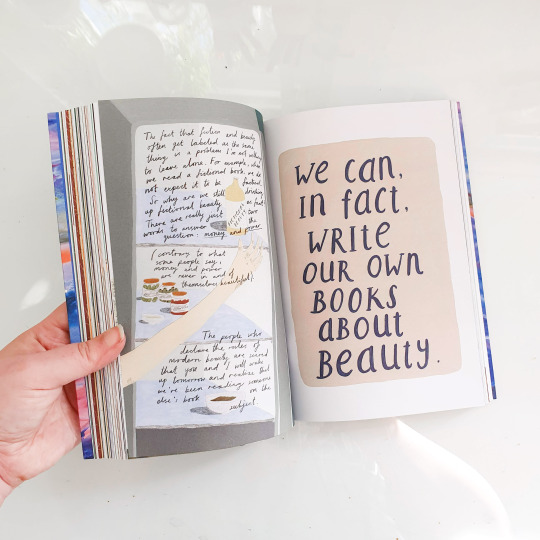 The fact that fiction and beauty
often get labeled as the same
thing is a problem I'm not willing
to leave alone. For example, when
we read a fictional book, we do
not expect it to be factual.
So why are we still drinking
up fictional beauty as fact
There are really just two
words to answer the
question: money and power
(contrary to what
some people say,
money and power
are never in and of
themselves beautiful).
The people who
declare the rules of
modern beauty are scared
that you and I will wake
up tomorrow and realize that
we've been reading someone
else's book on the
subject
we can,
in fact,
write
our own
books
about
beauty.